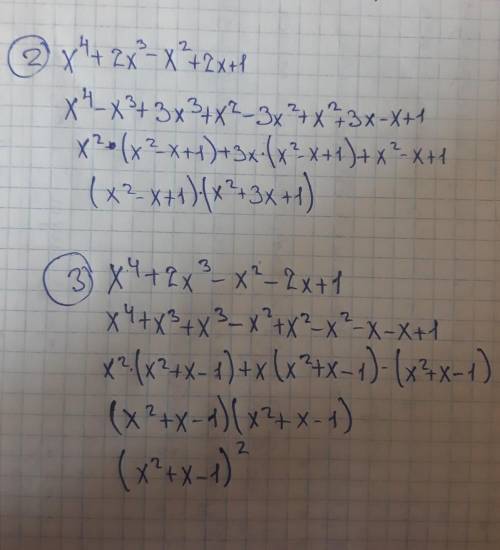 2) x⁴+2x³-x²+2x+1
x⁴-x³+3x³+x²-3x²+x²+3x-x+1
x²·(x²-x+1)+3x·(x²-x+1)+x²-x+1
(x²-x+1)·(x²+3x+1)
3) x⁴+2x³-x²-2x+1
x⁴+x³+x³-x²+x²-x²-x-x+1
x²·(x²+x-1)+x(x²+x-1)-(x²+x-1)
(x²+x-1)(x²+x-1)
(x²+x-1)²